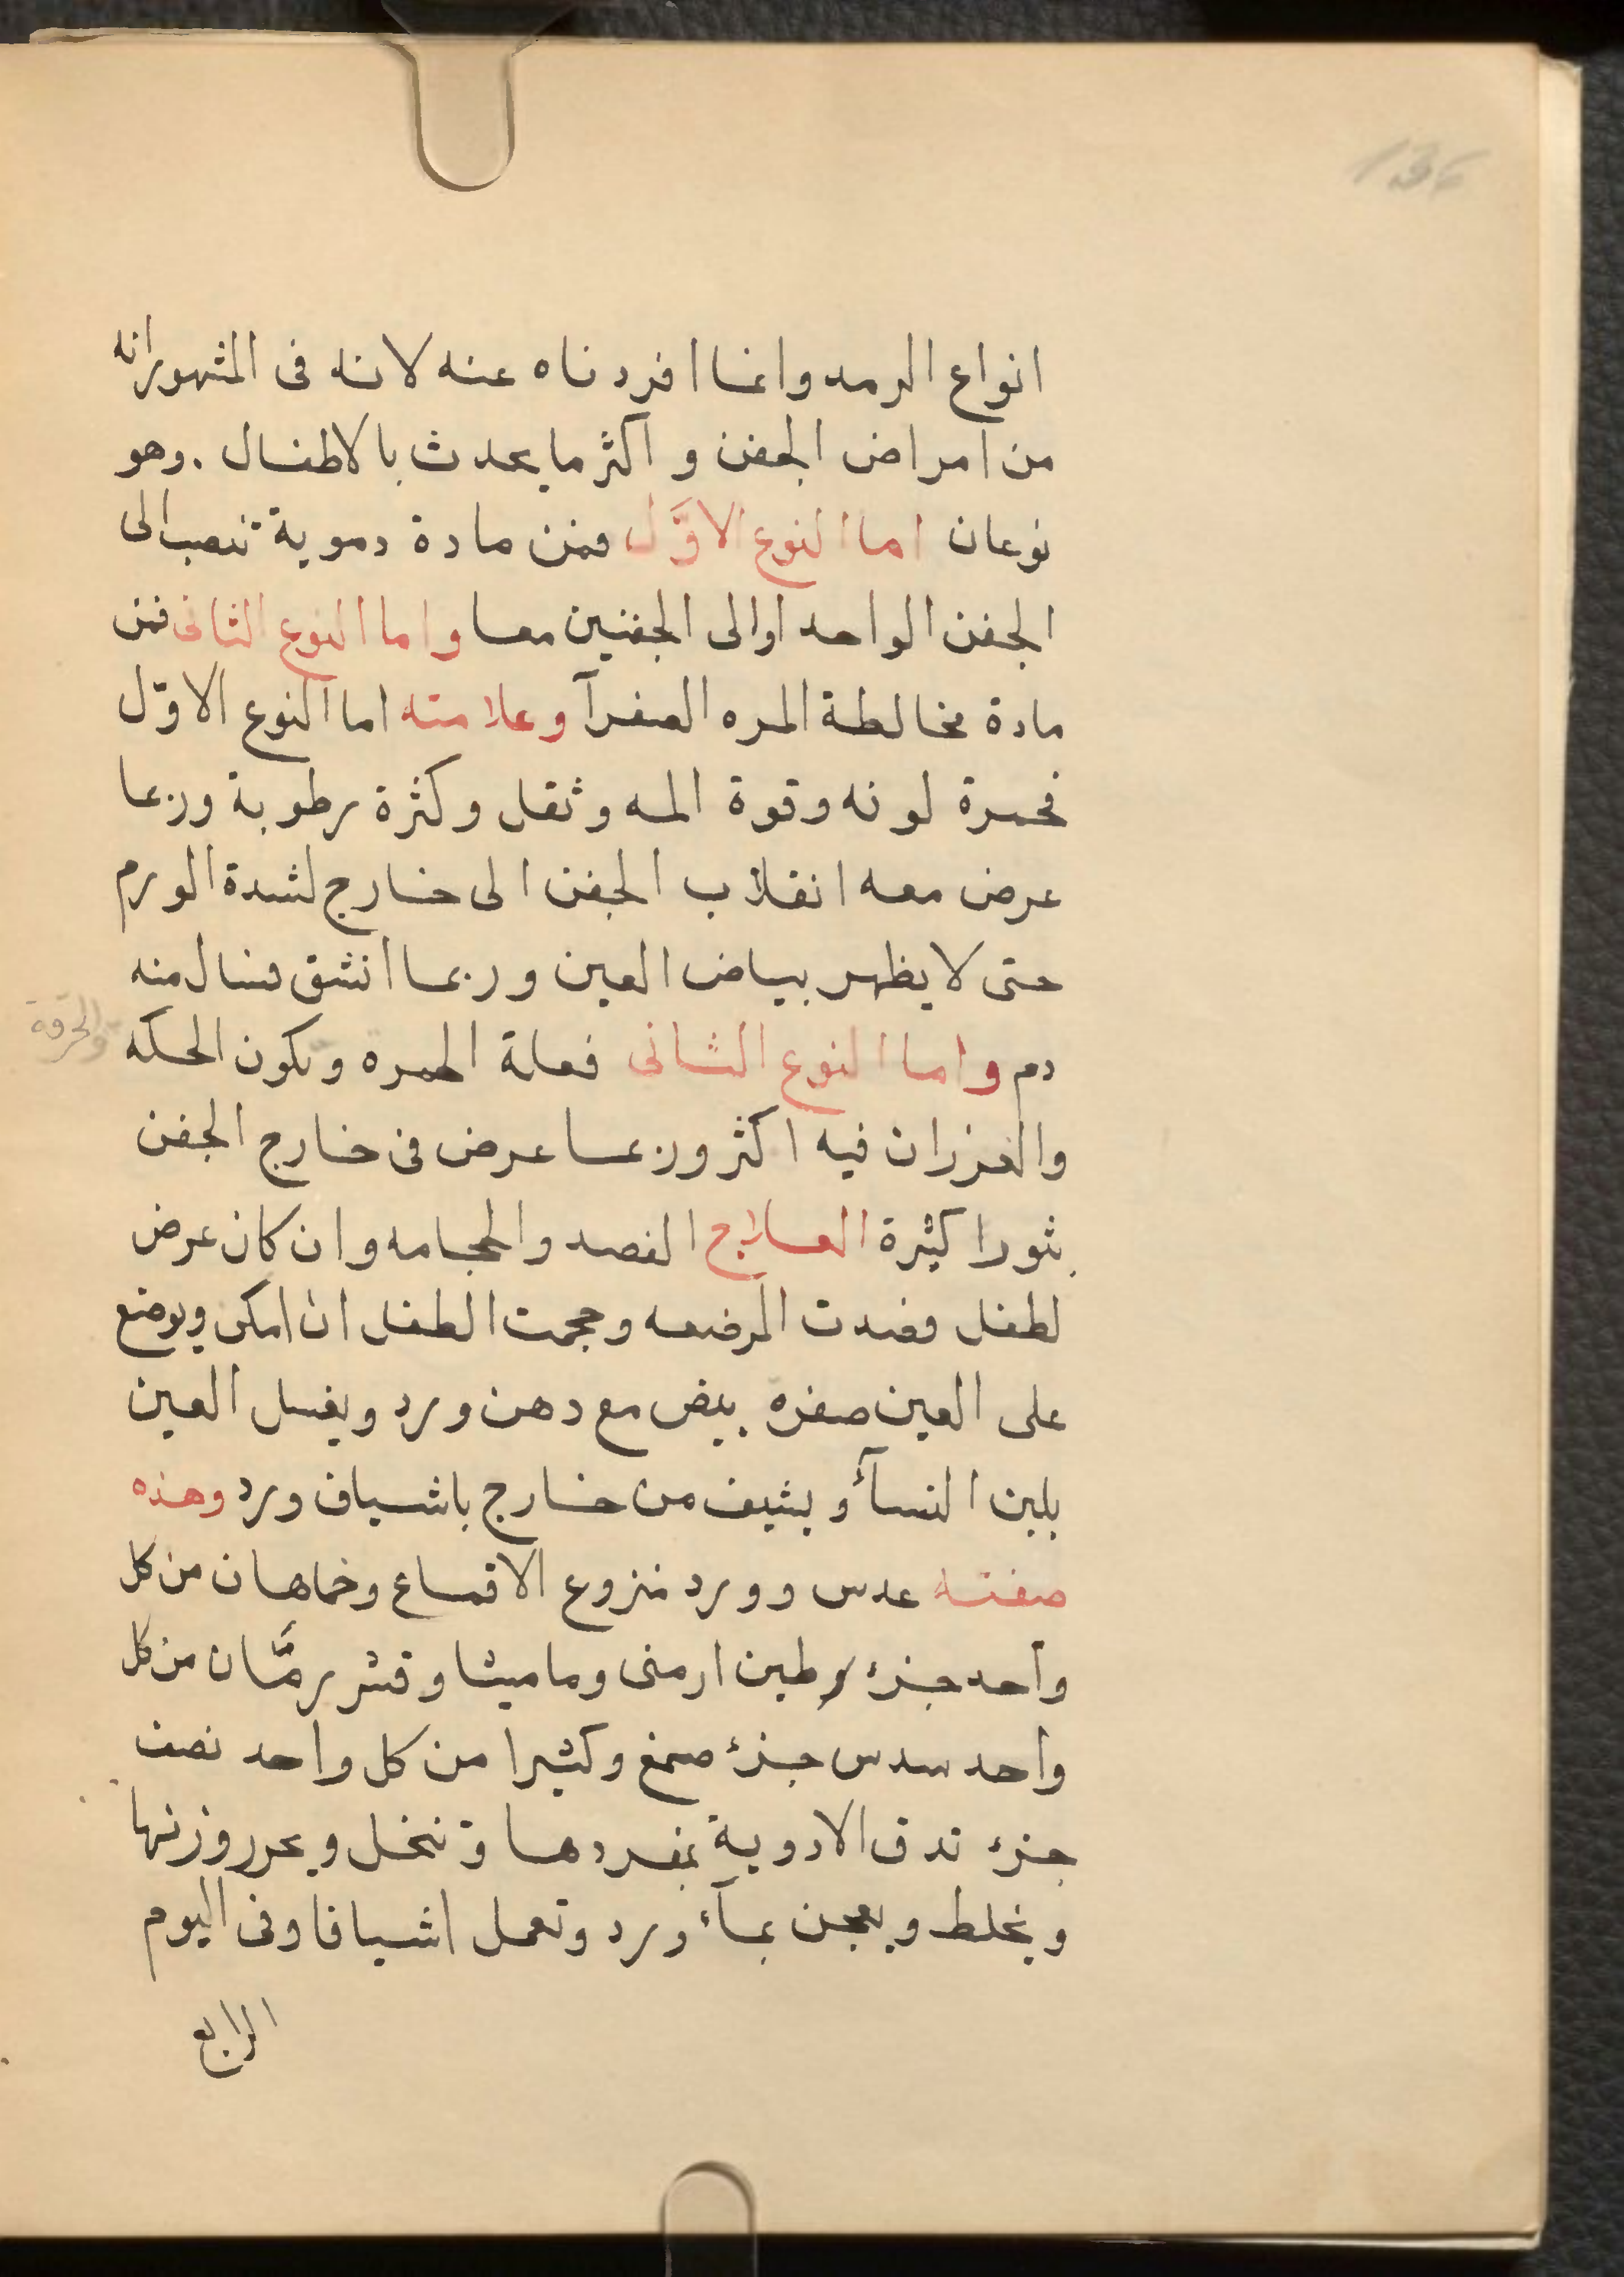 انواع الرمد وانما افردناه عنه لانه فى المشهور انه
من امراض الجفن و اكثر ما يحدث بالاطفال . وهو
نوعان اما النوع الاوّل فمن مادة دموية تنصب الى
الجفن الواحد او الى الجفنين معا واما النوع الثانى فمن
مادة مخالطة المره الصفرآ وعلامته اما النوع الاوّل
فحمرة لونه وقوة المه وثقل وكثرة رطوبة وربما
عرض معه انقلاب الجفن الى خارج لشدة الورم
حتى لا يظهر بياض العين وربما انشق فسال منه
دم واما النوع الثانى فعلة الحمره وتكون الحكه
والحرقة
والغرزان فيه اكثر وربما عرض فى خارج الجفن
بثورا كثيرة العلاج الفصد والحجامه وان كان عرض
لطفل فصدت المرضعه وحجمت الطفل ان امكن ويوضع
على العين صفره بيض مع دهن ورد ويغسل العين
بلبن النسآء ويشيف من خارج باشياف ورد وهذه
صفته عدس وورد منزوع الاقماع وخماهان من كل
واحد جزء وطين ارمنى وماميثا وقشر رمّان من كل
واحد سدس جزء صمغ وكثيرا من كل واحد نصف
جزء تدق الادوية بمفردها وتنخل ويحرر وزنها
ويخلط ويعجن بمآء ورد وتعمل اشيافا وفى اليوم
الرابع